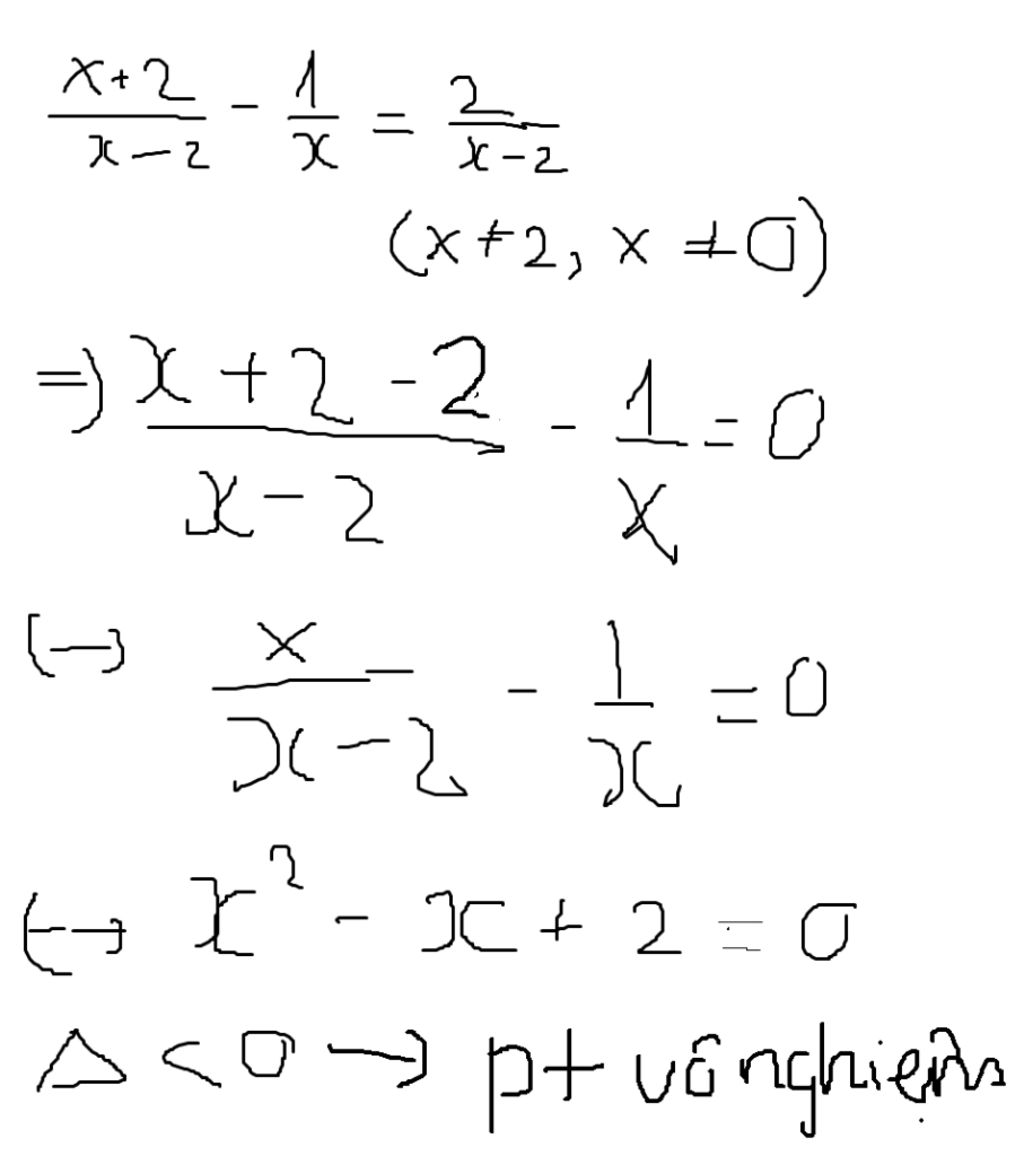 x+2/x-2 - 1/x = 2/x-2
(x≠2, x≠0)
=> x+2-2/x-2 - 1/x = 0
<-> x/x-2 - 1/x = 0
<-> x² - x + 2 = 0
Δ < 0 → pt vô nghiệm